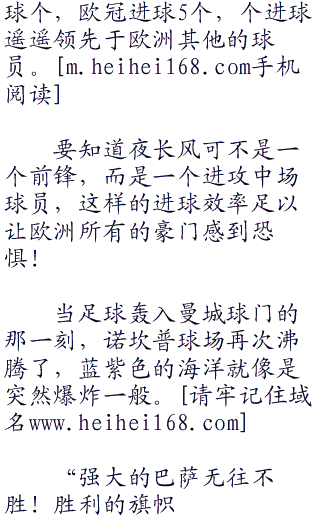 球个，欧冠进球5个，个进球
遥遥领先于欧洲其他的球
员。[m.heihei168.com手机
阅读]
要知道夜长风可不是一
个前锋，而是一个进攻中场
球员，这样的进球效率足以
让欧洲所有的豪门感到恐
惧！
当足球轰入曼城球门的
那一刻，诺坎普球场再次沸
腾了，蓝紫色的海洋就像是
突然爆炸一般。[请牢记住域
名www.heihei168.com]
“强大的巴萨无往不
胜！胜利的旗帜